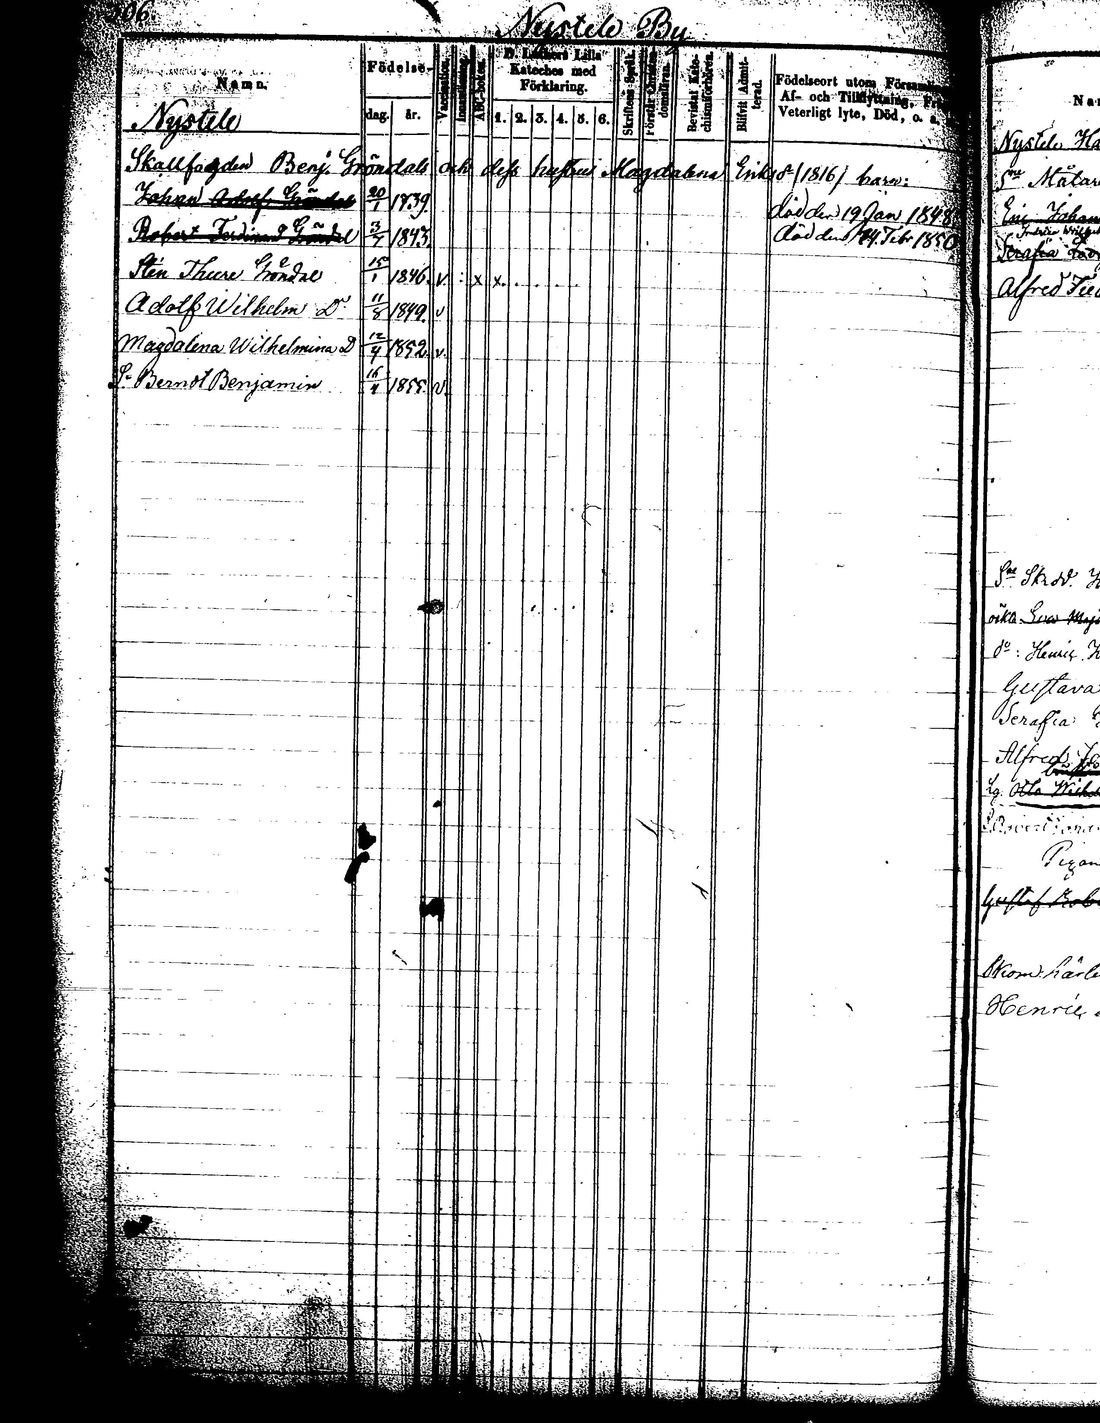 206.
Nystele By
Namn.
Födelse-
dag. år.
Vaccination.
Innanläsning.
ABC-boken.
D. Luthers Lilla
Kateches med
Förklaring.
1. 2. 3. 4. 5. 6.
Skriftens Språk.
Bevistat Kate-
chismiförhören.
Blifvit Admit-
terad.
Födelseort utom Församlin
Af- och Tillflyttning, Fr
Veterligt lyte, Död, o. s.
Nystele
Skallfogden Benj. Gröndals och dess hustru Magdalena Eriksdr (1816) barn:
Johan Adolf Gröndal 20/1 1839. död den 19 Jan 1848
Robert Ferdinand Gröndal 3/7 1843. död den 24 Febr 1850
Sten Thure Gröndal 15/1 1846. v. : x x
Adolf Wilhelm D° 11/8 1849. v
Magdalena Wilhelmina D 12/4 1852. v.
S. Berndt Benjamin 16/4 1855. v.
Na
Nystele
Måtar
Johan
Serafia
Alfred
Eva
d°: Henric
Gustava
Serafia
Alfred
Otto
Gustaf
Henric